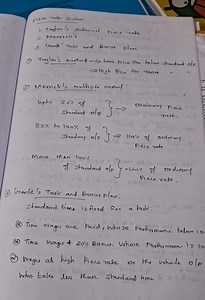 Piece rate System
1. Taylor's different Piece rate
2. Merrick's
3. Gantt Task and Bonus Plan.
① Taylor's Low Piece Rate for below Standard o/p
→ High Piece for above " "
② Merrick's multiple method
Upto 83% of Standard o/p } → Ordinary Piece rate.
83% to 100% of Standard o/p } → 110% of ordinary Piece rate
More than 100% of Standard o/p } → 120% of ordinary Piece rate.
③ Gantt's Task and Bonus plan.
Standard time is fixed for a task
Time wages are Paid, whose Performance below
Time wages + 20% Bonus whose Performance is
Wages at high Piece rate on the whole o/p
who takes less than Standard time